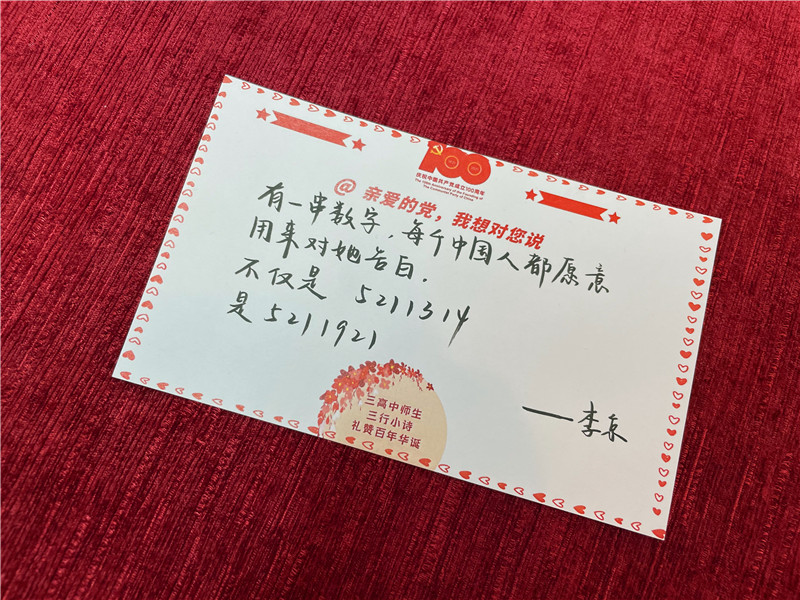 100
庆祝中国共产党成立100周年
The 100th Anniversary of the Founding of
The Communist Party of China
@ 亲爱的党，我想对您说
有一串数字，每个中国人都愿意
用来对她告白.
不仅是 5211314
是5211921
——李东
三高中师生
三行小诗
礼赞百年华诞